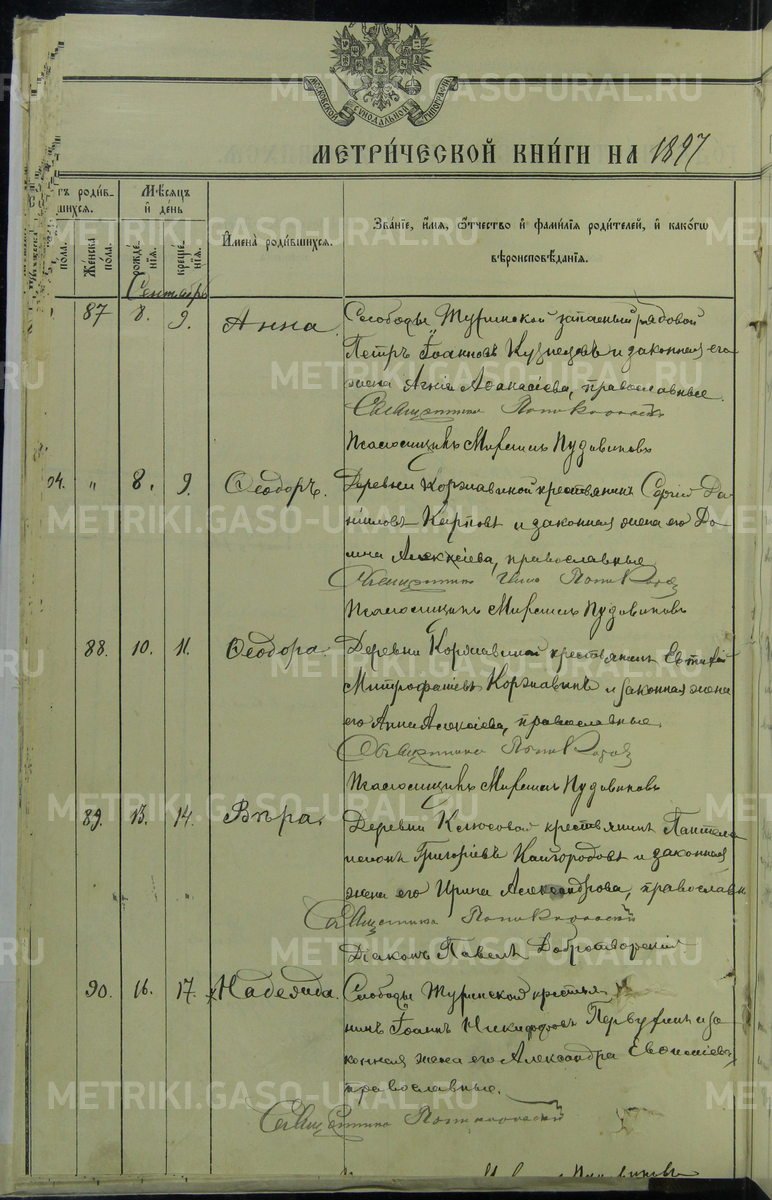 МОСКОВСКОЙ СѴНОДАЛЬНОЙ ТИПОГРАФІИ
МЕТРИ́ЧЕСКОЙ КНИ́ГИ НА 1897
METRIKI.GASO-URAL.RU
Мѣ́сяцъ и҆ де́нь
роди́вшихся.
Же́нска по́ла.
рожде́нїѧ.
креще́нїѧ.
И҆мена̀ роди́вшихся.
Зва́нїе, и҆́мѧ, ѻ҆́тчество и҆ фами́лїѧ роди́телей, и҆ како́гѡ
вѣроисповѣ́данїѧ.
Сентябрь
87 8. 9. Анна. Слободы Туринской запасный рядовой
Петръ Іоанновъ Кузнецовъ и законная его
жена Агнія Аѳанасіева, православные.
Священникъ
Псаломщикъ Мирсилъ Пудовиковъ
94. " 8. 9. Ѳеодоръ. Деревни Коржавиной крестьянинъ Сергій Да-
ніиловъ Карповъ и законная жена его До-
мна Алексіева, православные
Священникъ
Псаломщикъ Мирсилъ Пудовиковъ
88. 10. 11. Ѳеодора. Деревни Коржавиной крестьянинъ Евтихій
Митрофановъ Коржавинъ и законная жена
его Анна Алексіева, православные.
Священникъ
Псаломщикъ Мирсилъ Пудовиковъ
89. 13. 14. Вѣра. Деревни Ключевой крестьянинъ Пантеле
имонъ Григоріевъ Кайгородовъ и законная
жена его Ирина Александрова, православн
Священникъ
Діаконъ Павелъ Добротворскій
90. 16. 17. Надежда. Слободы Туринской крестья
нинъ Іоаннъ Никифоровъ Первухинъ и за
конная жена его Александра
православные.
Священникъ